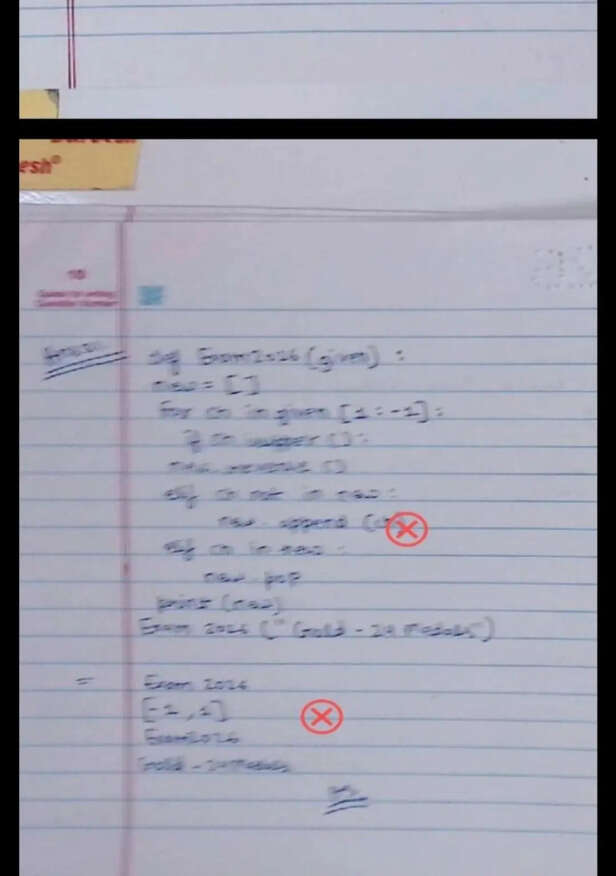 esh®
10
Answer:
def Exam2026(given) :
new = [ ]
for ch in given [1 : -1] :
if ch isupper () :
new. reverse ()
elif ch not in new :
new. append (ch
elif ch in new :
new. pop
print (new)
Exam 2026 ("Gold - 24
=
Exam 2026
[-1, 1]
Exam2026
Gold -